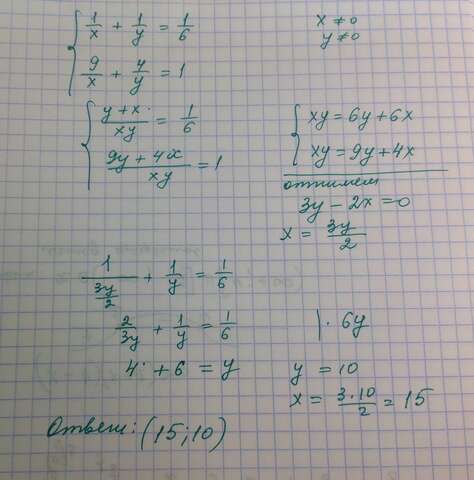 1/x + 1/y = 1/6
x ≠ 0
y ≠ 0
9/x + 4/y = 1
(y + x)/(xy) = 1/6
(9y + 4x)/(xy) = 1
xy = 6y + 6x
xy = 9y + 4x
отнимем
3y - 2x = 0
x = 3y/2
1/(3y/2) + 1/y = 1/6
2/(3y) + 1/y = 1/6 | · 6y
4 + 6 = y
y = 10
x = (3·10)/2 = 15
Ответ: (15; 10)